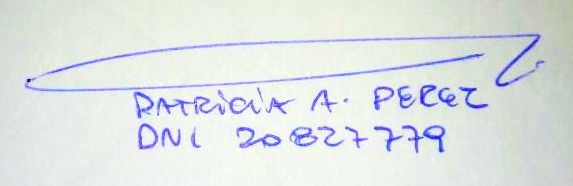 PATRICIA A. PEREZ
DNI 20827779